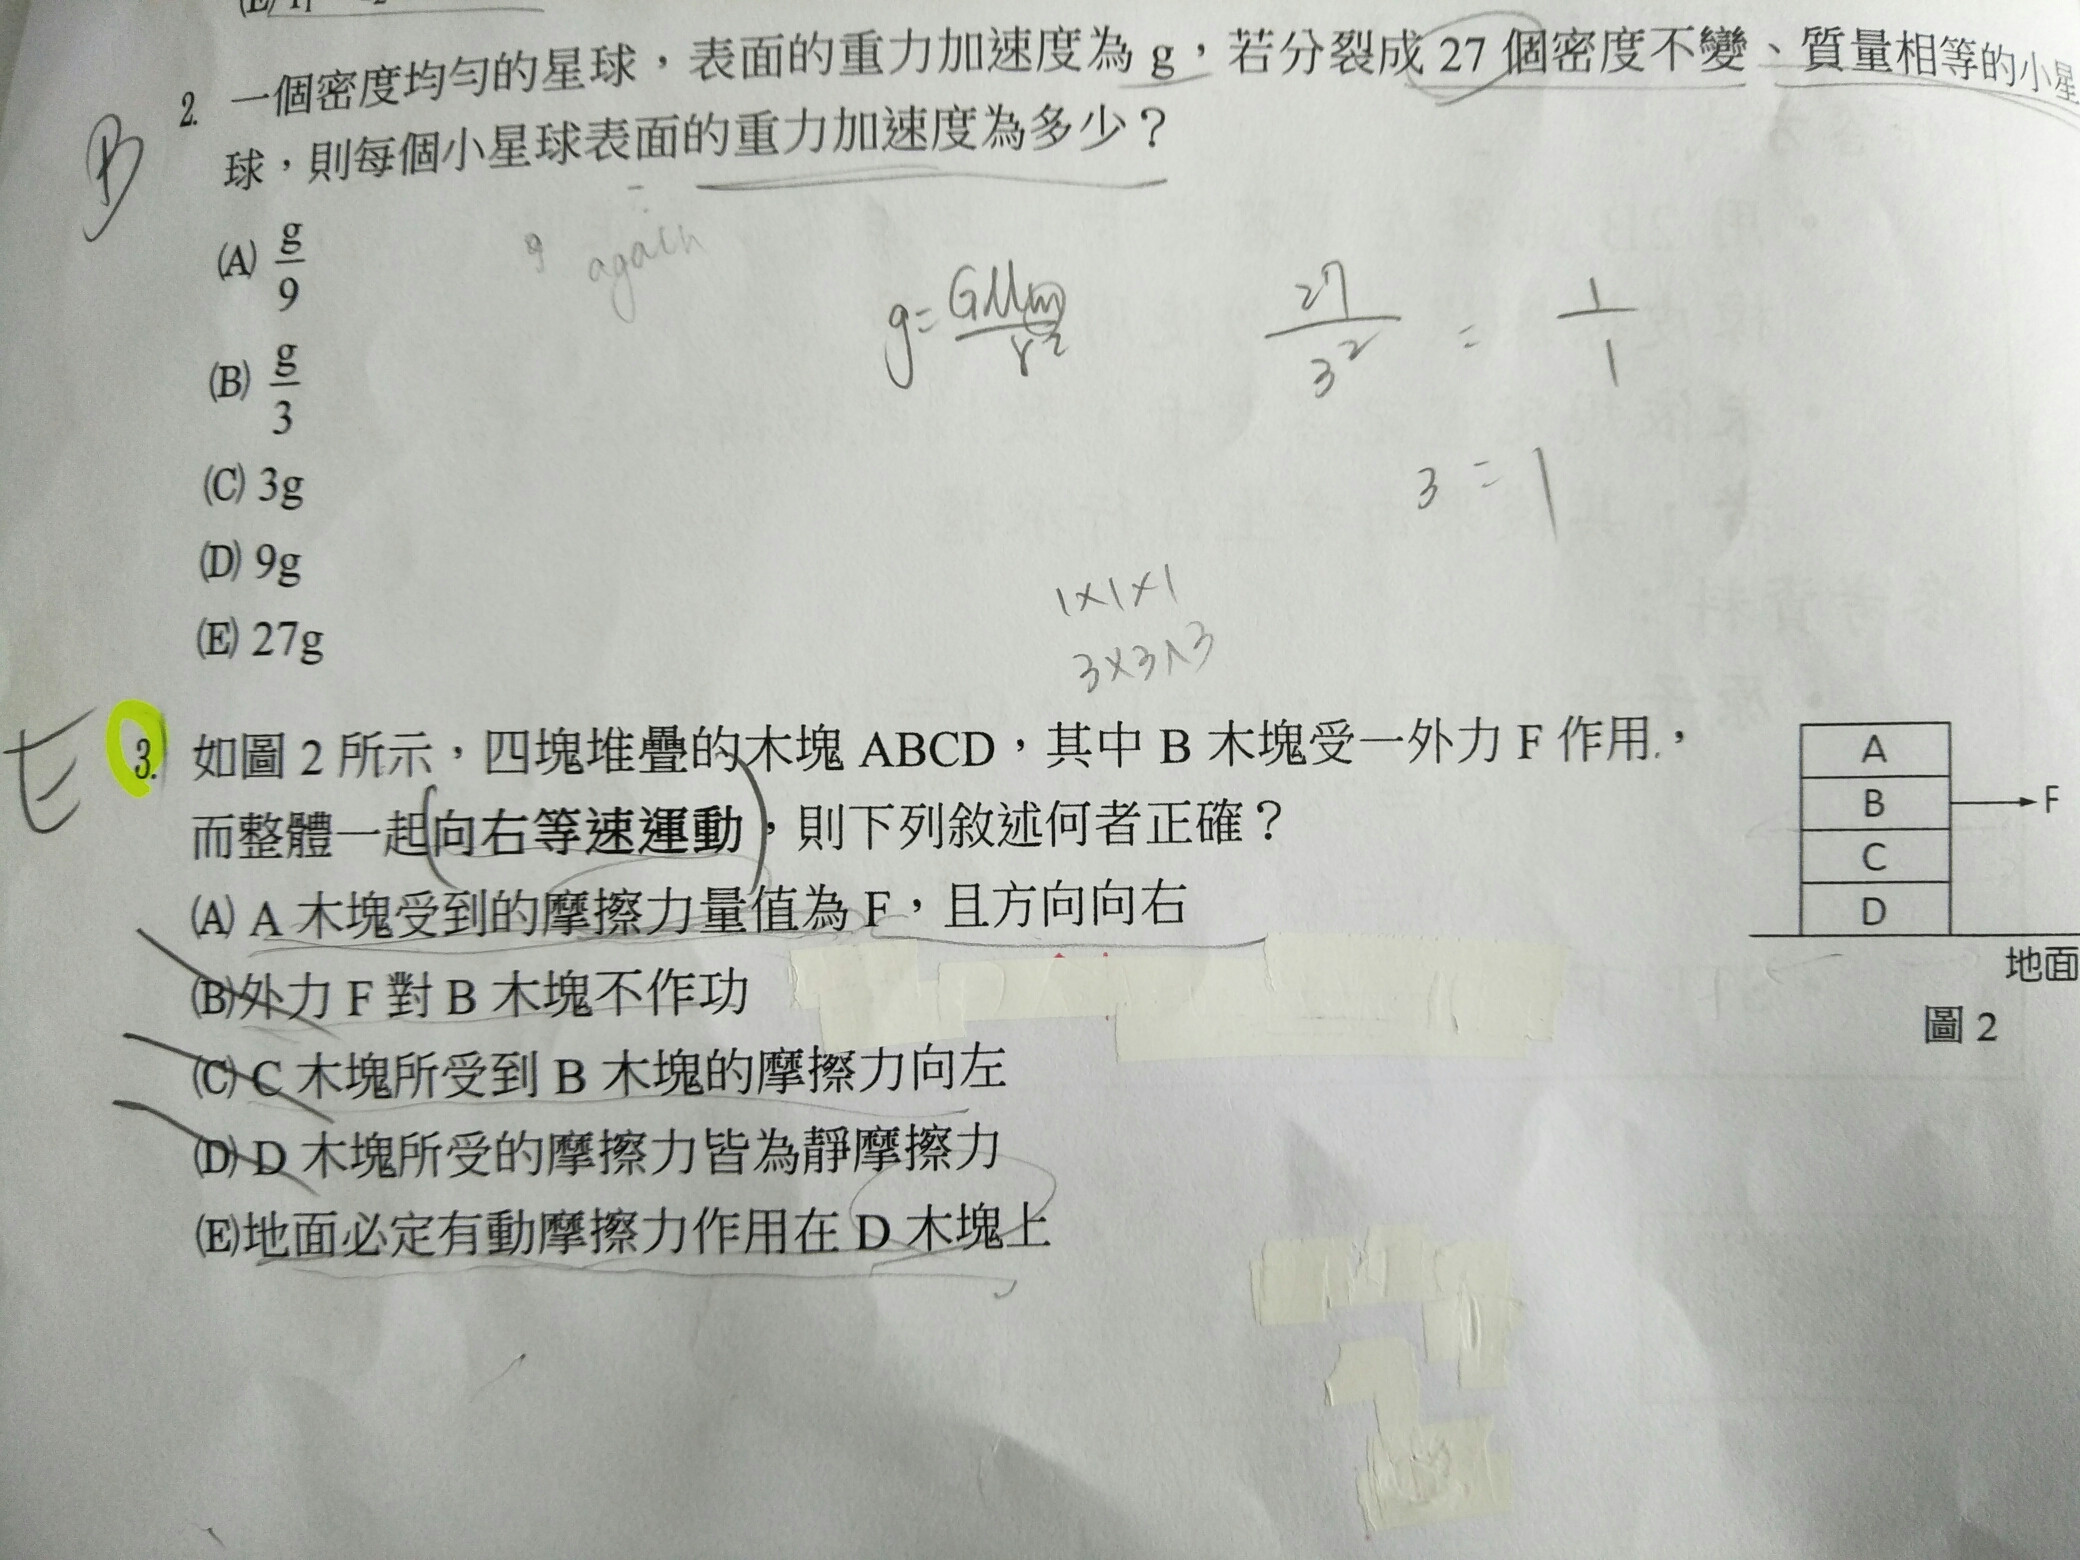 2. 一個密度均勻的星球,表面的重力加速度為 g,若分裂成 27 個密度不變、質量相等的小星
球,則每個小星球表面的重力加速度為多少?
B
(A) g/9
9 again
g = GMm/r² 27/3² = 1/1
(B) g/3
(C) 3g
3 = 1
(D) 9g
1×1×1
(E) 27g
3×3×3
E
3. 如圖 2 所示,四塊堆疊的木塊 ABCD,其中 B 木塊受一外力 F 作用,
而整體一起向右等速運動,則下列敘述何者正確?
(A) A 木塊受到的摩擦力量值為 F,且方向向右
(B) 外力 F 對 B 木塊不作功
(C) C 木塊所受到 B 木塊的摩擦力向左
(D) D 木塊所受的摩擦力皆為靜摩擦力
(E) 地面必定有動摩擦力作用在 D 木塊上
A
B F
C
D
地面
圖 2